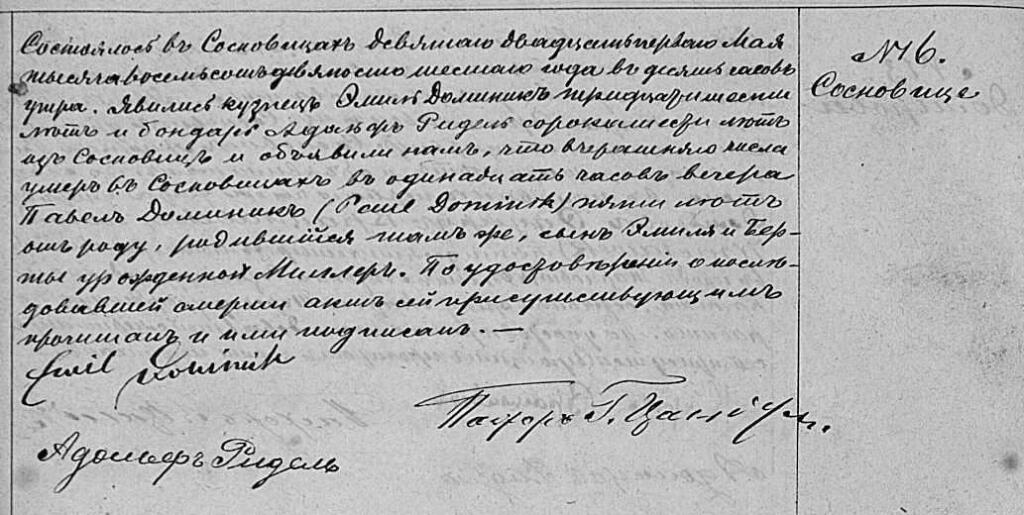 Состоялось въ Сосновицахъ девятаго двадцать перваго Мая
тысяча восемьсотъ девяносто шестаго года въ десять часовъ
утра. Явились кузнецъ Эмиль Доминикъ тридцати шести
лѣтъ и бондарь Адольфъ Ридель сорока шести лѣтъ
изъ Сосновицъ и объявили намъ, что вчерашняго числа
умеръ въ Сосновицахъ въ одинадцать часовъ вечера
Павелъ Доминикъ (Paul Dominik) пяти лѣтъ
отъ роду, родившійся тамъ же, сынъ Эмиля и Бер-
ты урожденной Миллеръ. По удостовѣреніи о послѣ-
довавшей смерти актъ сей присутствующимъ
прочитанъ и ими подписанъ. —
Emil Dominik
Пасторъ Г.
Адольфъ Ридель
№ 6.
Сосновице